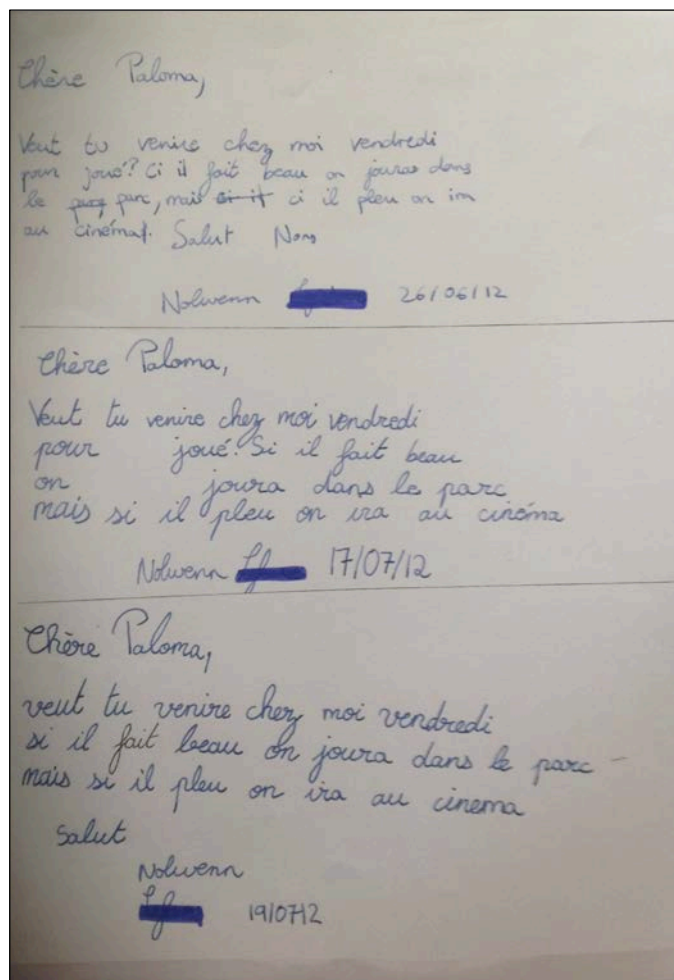 Chère Paloma,
Veut tu venire chez moi vendredi
pour joué? Ci il fait beau on jouras dans
le parc, mais ci il pleu on
au cinéma. Salut
Nolwenn 26/06/12
Chère Paloma,
Veut tu venire chez moi vendredi
pour joué. Si il fait beau
on joura dans le parc
mais si il pleu on ira au cinéma
Nolwenn 17/07/12
Chère Paloma,
veut tu venire chez moi vendredi
si il fait beau on joura dans le parc
mais si il pleu on ira au cinema
Salut
Nolwenn
19/07/12